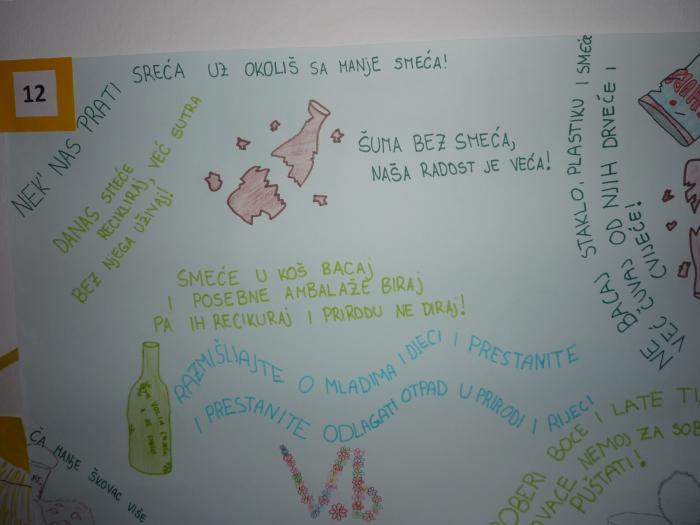 12
NEK' NAS PRATI SREĆA UZ OKOLIŠ SA MANJE SMEĆA!
DANAS SMEĆE
RECIKLIRAJ, VEĆ SUTRA
BEZ NJEGA UŽIVAJ!
ŠUMA BEZ SMEĆA,
NAŠA RADOST JE VEĆA!
NE BACAJ STAKLO, PLASTIKU I SMEĆE
VEĆ ČUVAJ OD NJIH DRVEĆE I
CVIJEĆE!
SMEĆE U KOŠ BACAJ
I POSEBNE AMBALAŽE BIRAJ
PA IH RECIKLIRAJ I PRIRODU NE DIRAJ!
RAZMIŠLJAJTE O MLADIMA I DJECI I PRESTANITE
I PRESTANITE ODLAGATI OTPAD U PRIRODI I RIJECI
Vb
ČA MANJE ŠKOVAC VIŠE
POBERI BOCE I LATE TI,
NEMOJ ZA SOBOM
PUŠTATI!